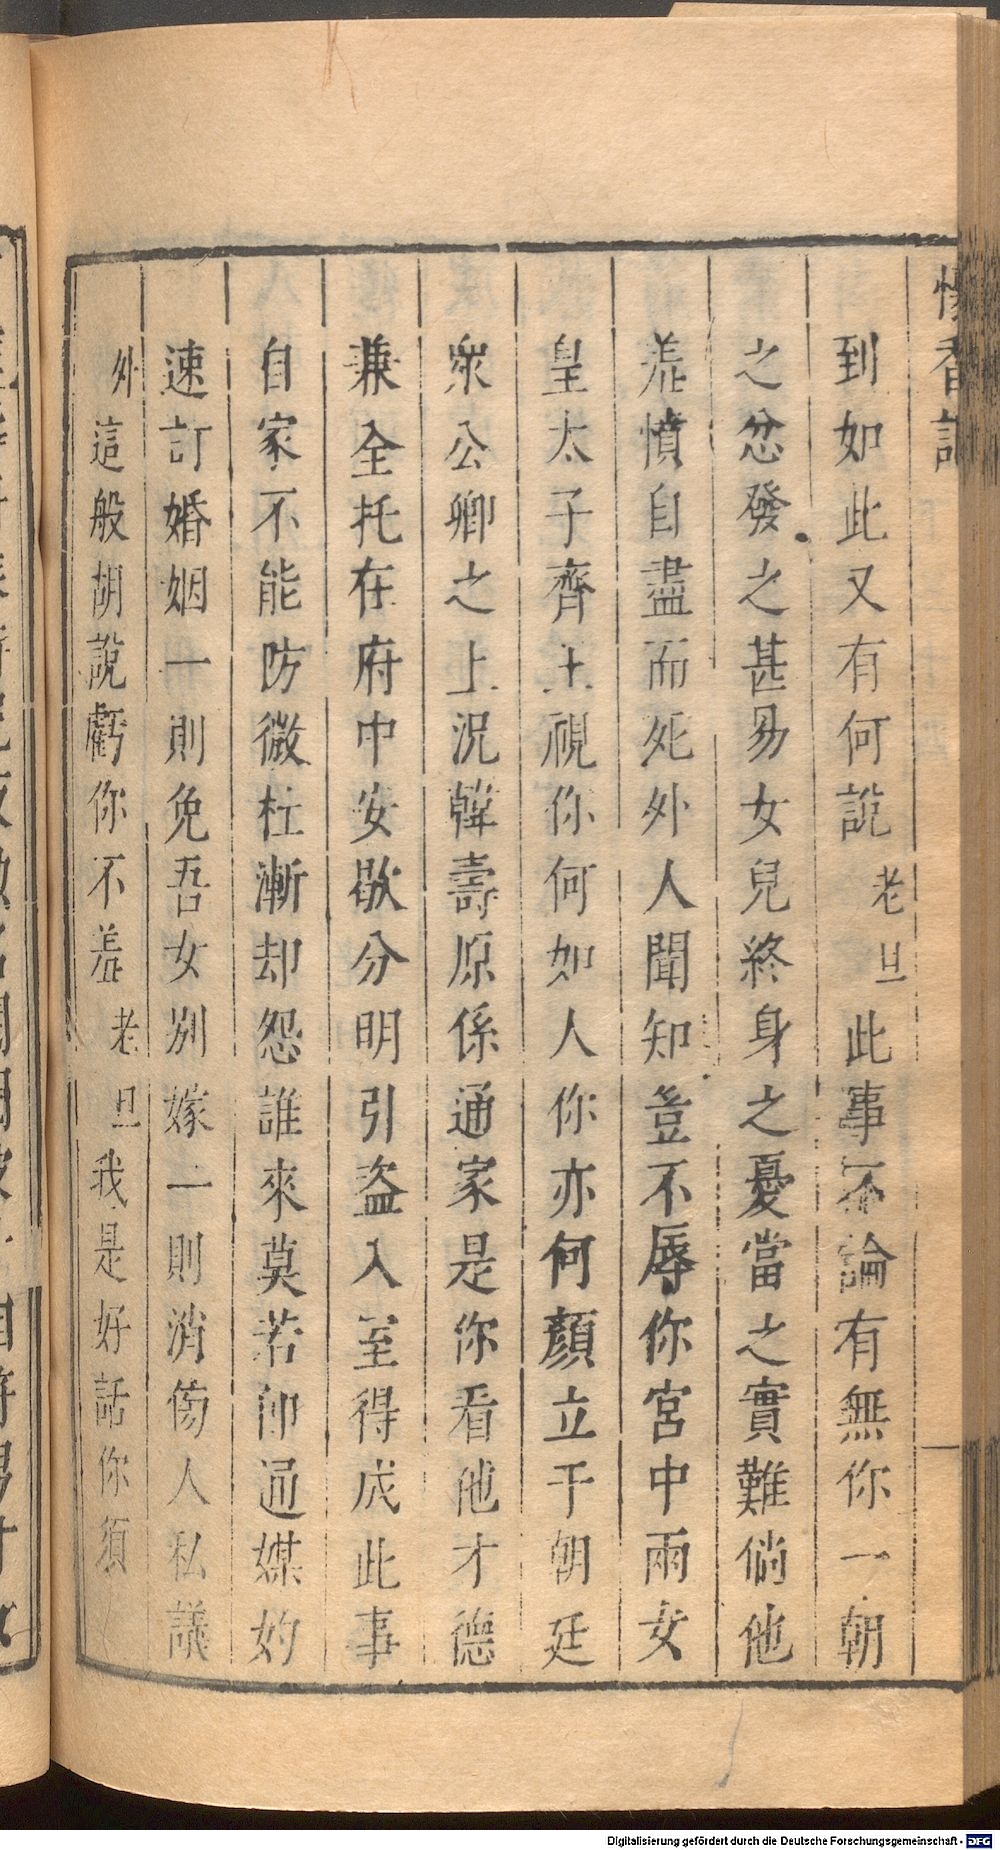 懷香記
到如此又有何說老旦此事不論有無你一朝
之忿發之甚易女兒終身之憂當之實難倘他
羞憤自盡而死外人聞知豈不辱你宮中兩女
皇太子齊王視你何如人你亦何顏立于朝廷
衆公卿之上況韓壽原係通家是你看他才德
兼全托在府中安歇分明引盗入室得成此事
自家不能防微杜漸却怨誰來莫若即通媒妁
速訂婚姻一則免吾女别嫁二則消傷人私議
外這般胡說虧你不羞老旦我是好話你須
Digitalisierung gefördert durch die Deutsche Forschungsgemeinschaft - DFG